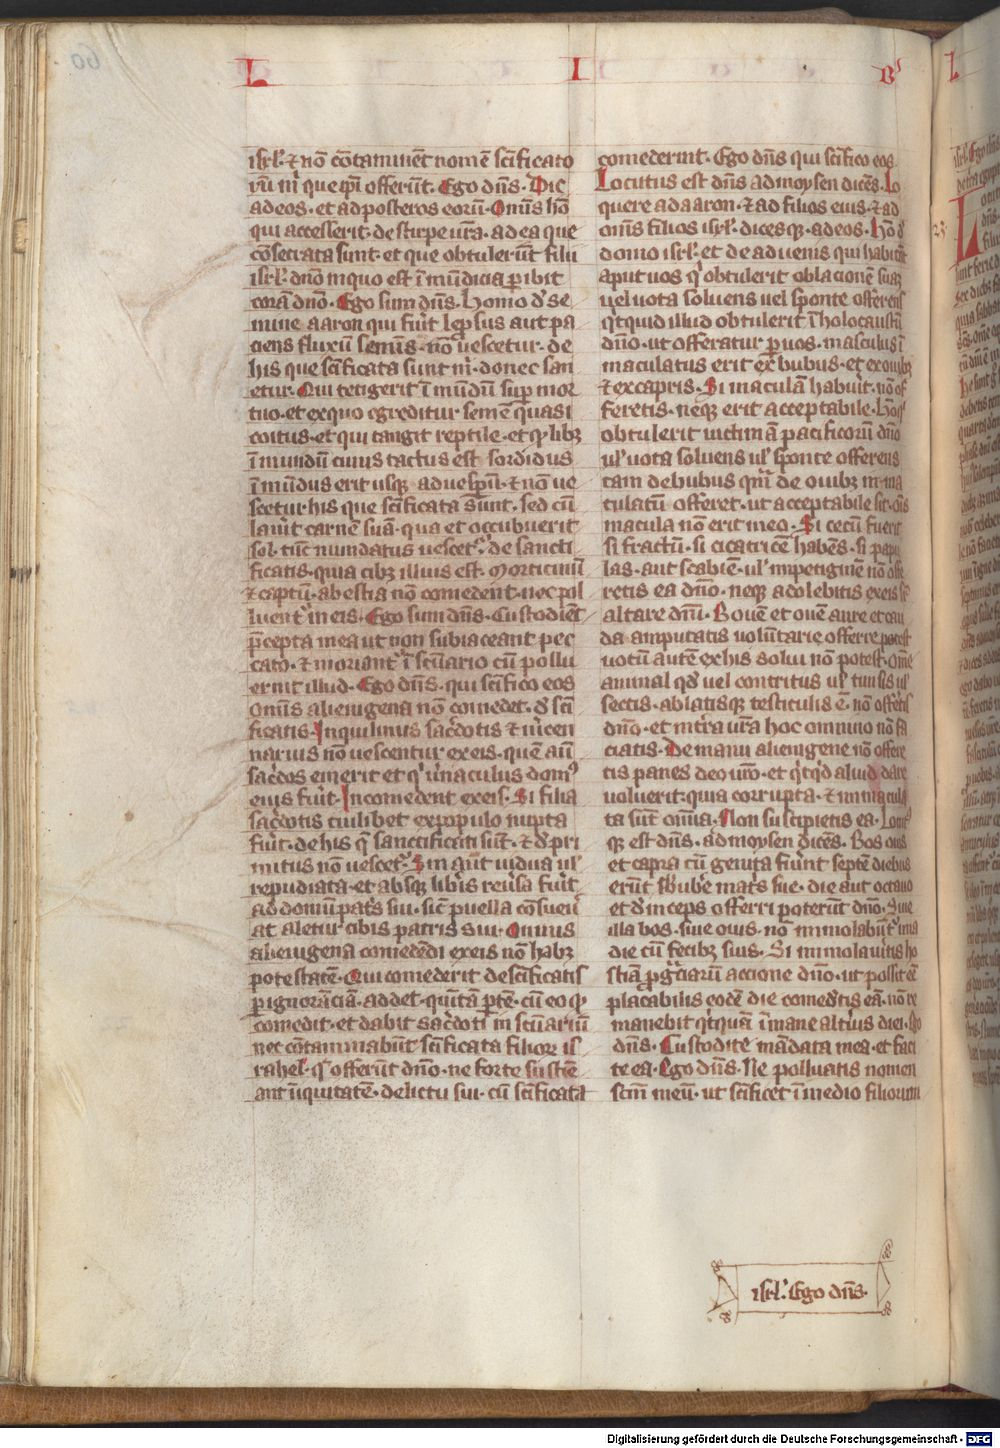 L I Bꝰ
isrl̓. ⁊ nō cōtaminent nomē scīficato
rū m̄ que ip̄i offerūt. Ego dn̄s. Dic
ad eos. et ad posteros eorū. Omīs hō
qui accesserit. de stirpe ur̄a. ad ea que
cōsecrata sunt. et que obtulerūt filii
isrl̓. dn̄o in quo est īmūdicia ꝑibit
corā dn̄o. Ego sum dn̄s. Homo d̓ se
mine aaron qui fuīt lepsus aut pa
ciens fluxū semīs. nō uescetur. de
his que scīficata sunt m̄. donec san
etur. Qui tetigerit īmūdū suꝑ mor
tuo. et ex quo egreditur semē quasi
coitus. et qui tangit reptile. et qͥlibꝫ
īmundū cuius tactus est sordidus
īmūdus erit usqꝫ ad uesꝑū. ⁊ nō ue
scetur his que scīficata sunt. sed cū
lauīt carnē suā. qua et occubuerit
sol. tūc mundatus uescet᷑. de sancti
ficatis. quia cibꝫ illius est. Morticinū
⁊ captū. a bestia nō comedent. nec pol
luent᷑ in eis. Ego sum dn̄s. Custodiēt
p̄cepta mea ut non subiaceant pec
cato. ⁊ moriant᷑ ī scūario cū pollu
erint illud. Ego dn̄s. qui scīfico eos
Omīs alienigena nō comedet. d̓ scī
ficatis. Inquilinus sac̓dotis ⁊ m̓cen
narius nō uescentur ex eis. quē aūt
sac̓dos emerit et qͥ u̓naculus domꝰ
eius fuīt. In comedent ex eis. Si filia
sac̓dotis cuilibet ex populo nupta
fuīt. de his q̄ sanctificati sūt. ⁊ d̓ pri
mitus nō uescet᷑. Sin aūt uidua ul̓
repudiata. et absqꝫ lib̓is reu̓sa fuīt.
ad domū pat̓s sui. sic̄ puella cōsueu̓
at aletur cibis patris sui. Omnis
alienigena comedēdi ex eis nō habꝫ
potestatē. Qui comederit de scīficatis
ꝑ ignorāciā. addet. quītā ꝑtē. cū eo qͥ
comedit. et dabit sac̓doti in scūariū
nec cōtaminabūt scīficata filioꝝ is
rahel. q̄ offerūt dn̄o. ne forte sustē
ant iniquitatē. delictu sui. cū scīficata
comederint. Ego dn̄s qui scīfico eos
Locutus est dn̄s ad moysen dicēs. Lo
quere ad aaron. ⁊ ad filios eius. ⁊ ad
omīs filios isrl̓. dicesqꝫ. ad eos. Hō d̓
domo isrl̓. et de aduenis qui habitāt
aput uos qͥ obtulerit oblacionē suā
uel uota soluens uel sponte offerens
qͥtquid illud obtulerit ī holocaustū
dn̄o. ut offeratur ꝑ uos. masculus ī
maculatus erit ex bubus. et ex ouibꝫ
⁊ ex capris. Si maculā habuīt. nō of
feretis. neqꝫ erit acceptabile. Hō qͥ
obtulerit uictimā pacificorū dn̄o
ul̓ uota soluens ul̓ sponte offerens
tam de bubus qm̄ de ouibꝫ in ma
culatū offeret. ut acceptabile sit. om̄s
macula nō erit in eo. Si cecū fuerit
si fractū. si cicatricē habēs. si papu
las. aut scabiē. ul̓ impetiginē nō offe
retis ea dn̄o. neqꝫ adolebitis ex eis sr̄
altare dn̄i. Bouē et ouē aure et cau
da amputatis uolūtarie offerre potest
uotū autē ex his solui nō potest. Om̄e
animal qd̓ uel contritus ul̓ tunsis ul̓
sectis. ablatisqꝫ testiculis ē. nō offet̓is
dn̄o. et in t̓ra ur̄a hoc omnino nō fa
ciatis. De manu alienigene nō offere
tis panes deo ur̄o. et qͥtqͥd aliud dare
uoluerit. quia corrupta. ⁊ in macula
ta sūt om̄ia. Non suscipietis ea. Locutꝰ
qꝫ est dn̄s. ad moysen dicēs. Bos ouis
et capra cū genita fuīnt septē diebus
erūt sb̓ ub̓e mat̓s sue. die aut octauo
et d̓inceps offerri poterūt dn̄o. Siue
illa bos. siue ouis. nō immolabūt᷑ una
die cū fetibꝫ suis. Si immolau̓itis ho
stiā ꝓ grāciarū accione dn̄o. ut possit ēē
placabilis eodē die comed̓tis eā. nō re
manebit qͥtquā ī mane alt̓ius diei. Ego
dn̄s. Custodite mādata mea. et faci
te ea. Ego dn̄s. Ne polluatis nomen
scm̄ meū. ut scīficet ī medio filiorum
isrl̓. Ego dn̄s.
Digitalisierung gefördert durch die Deutsche Forschungsgemeinschaft - DFG